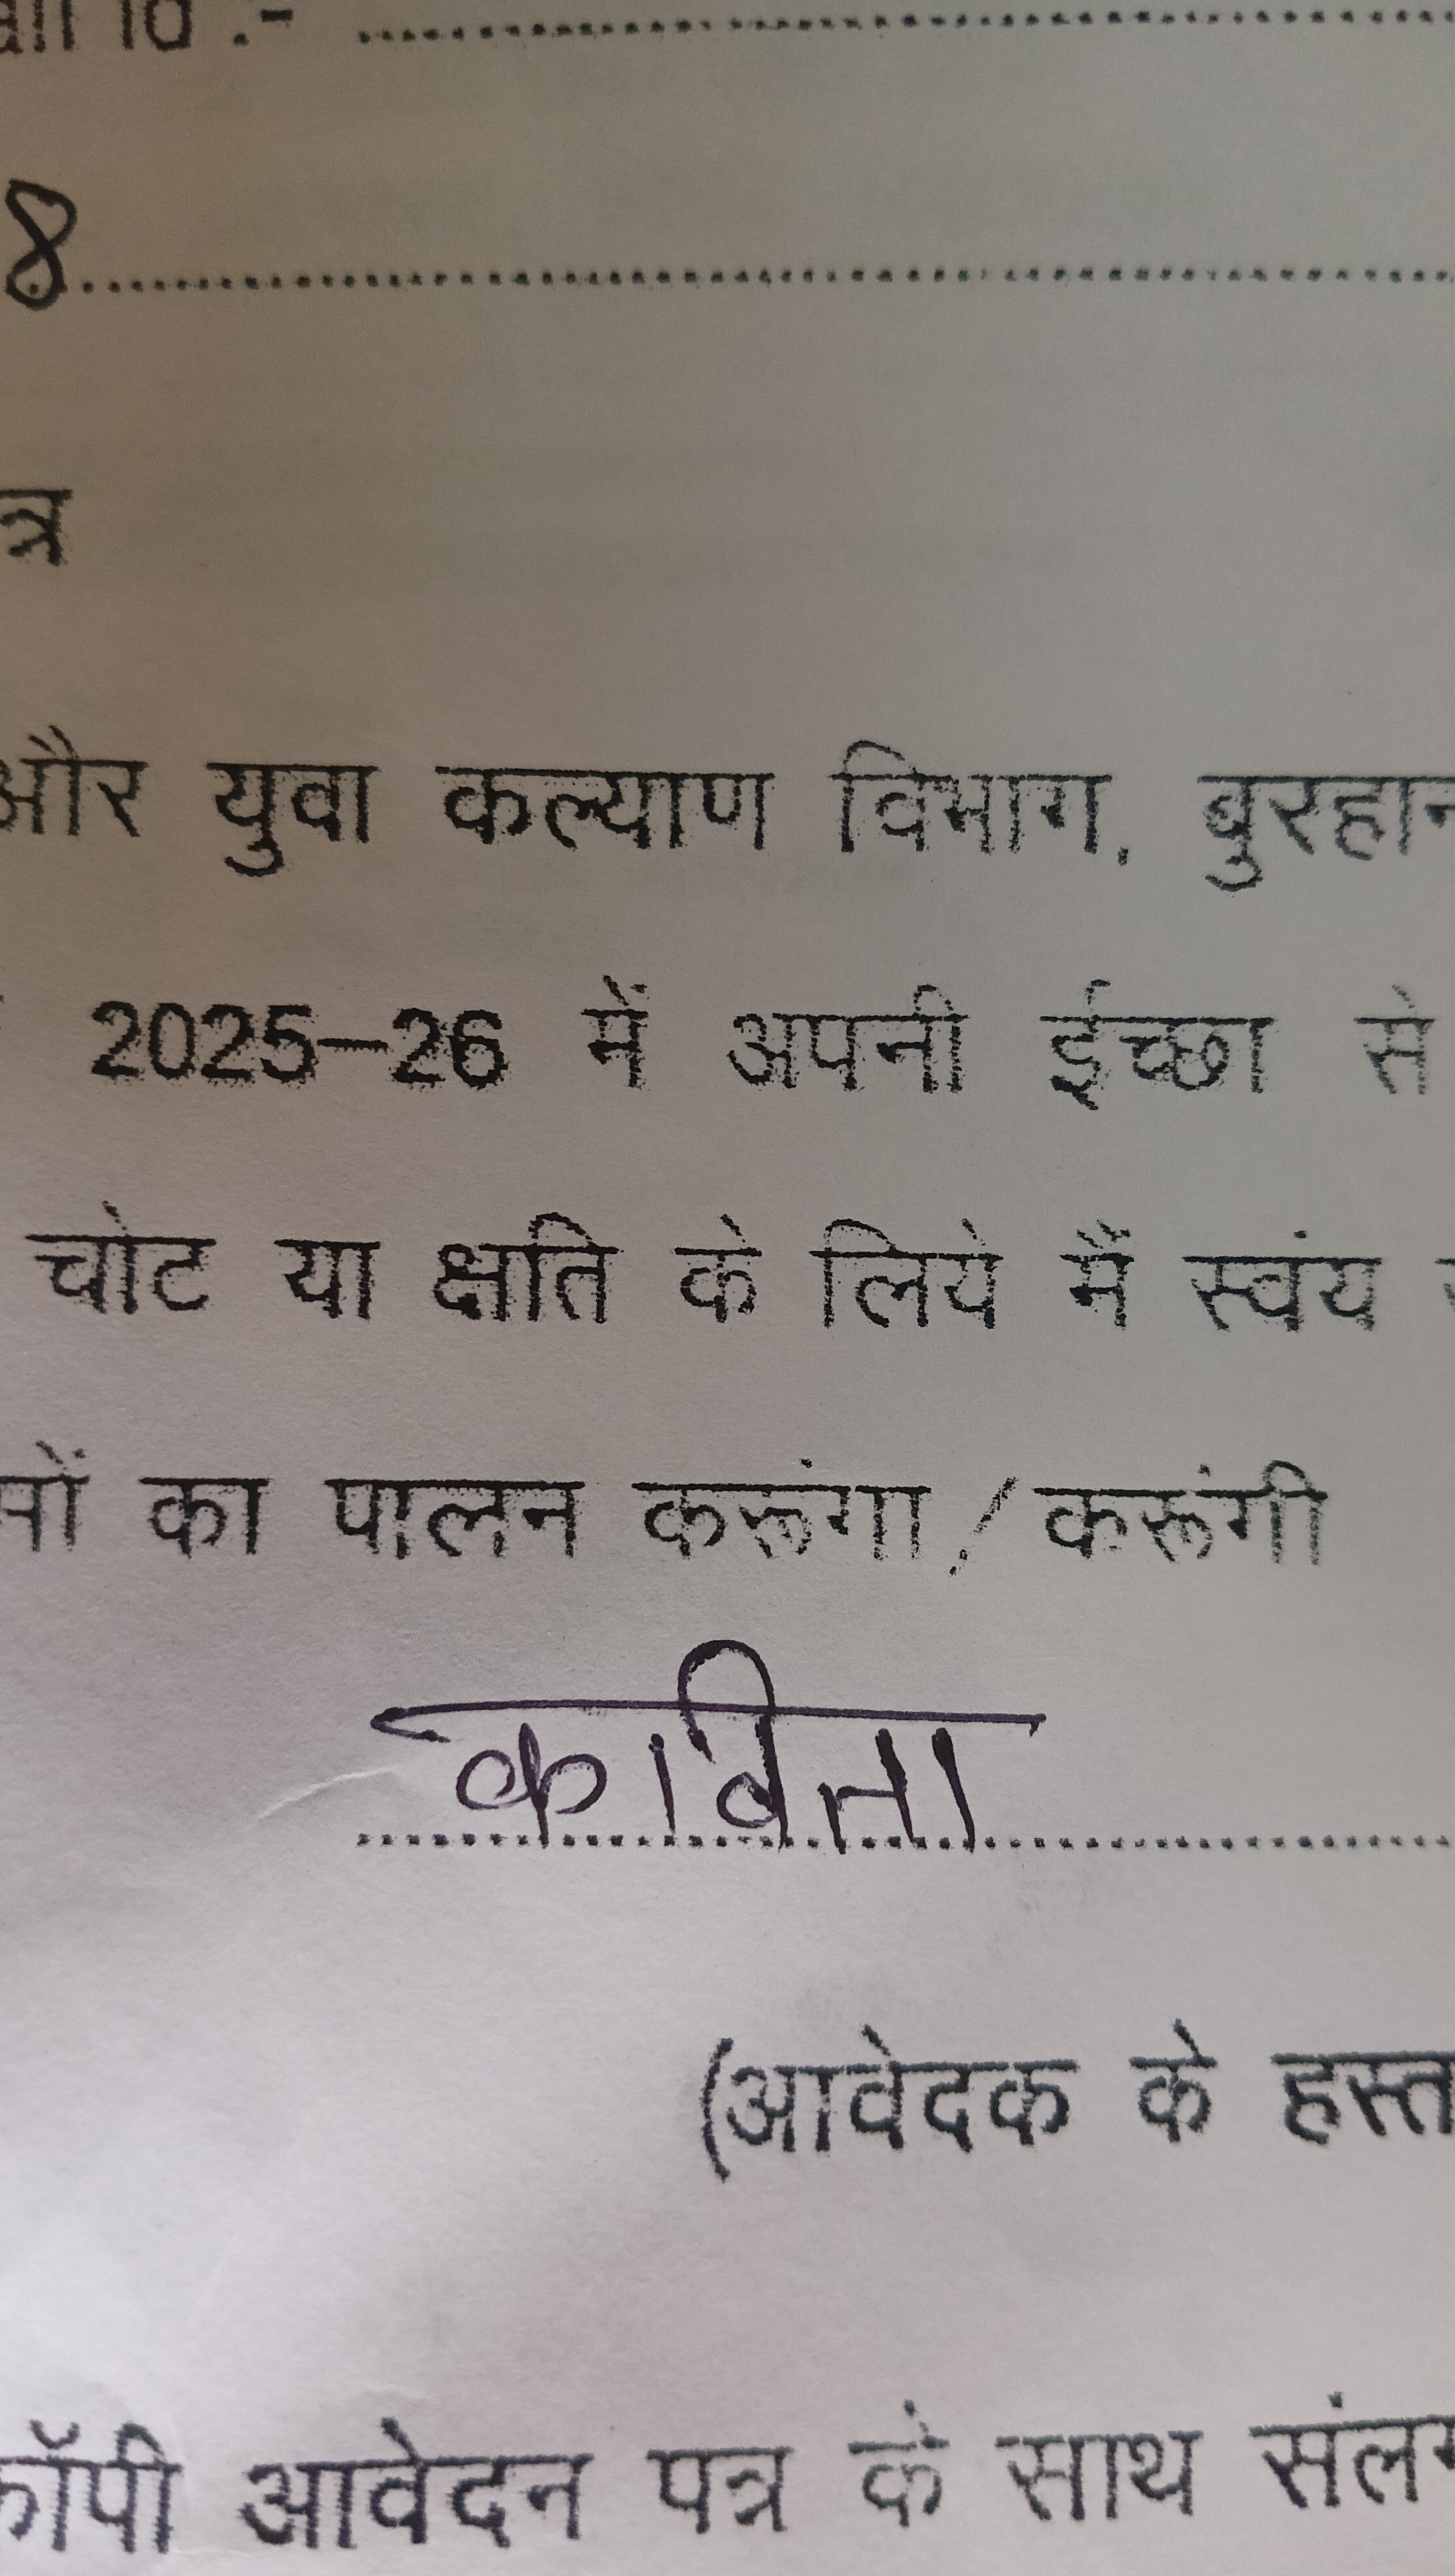 ail id :- ........................
8........................
त्र
और युवा कल्याण विभाग, बुरहान
2025–26 में अपनी ईच्छा से
चोट या क्षति के लिये मैं स्वंय
मों का पालन करूंगा / करूंगी
कविता
(आवेदक के हस्त
कॉपी आवेदन पत्र के साथ संलग